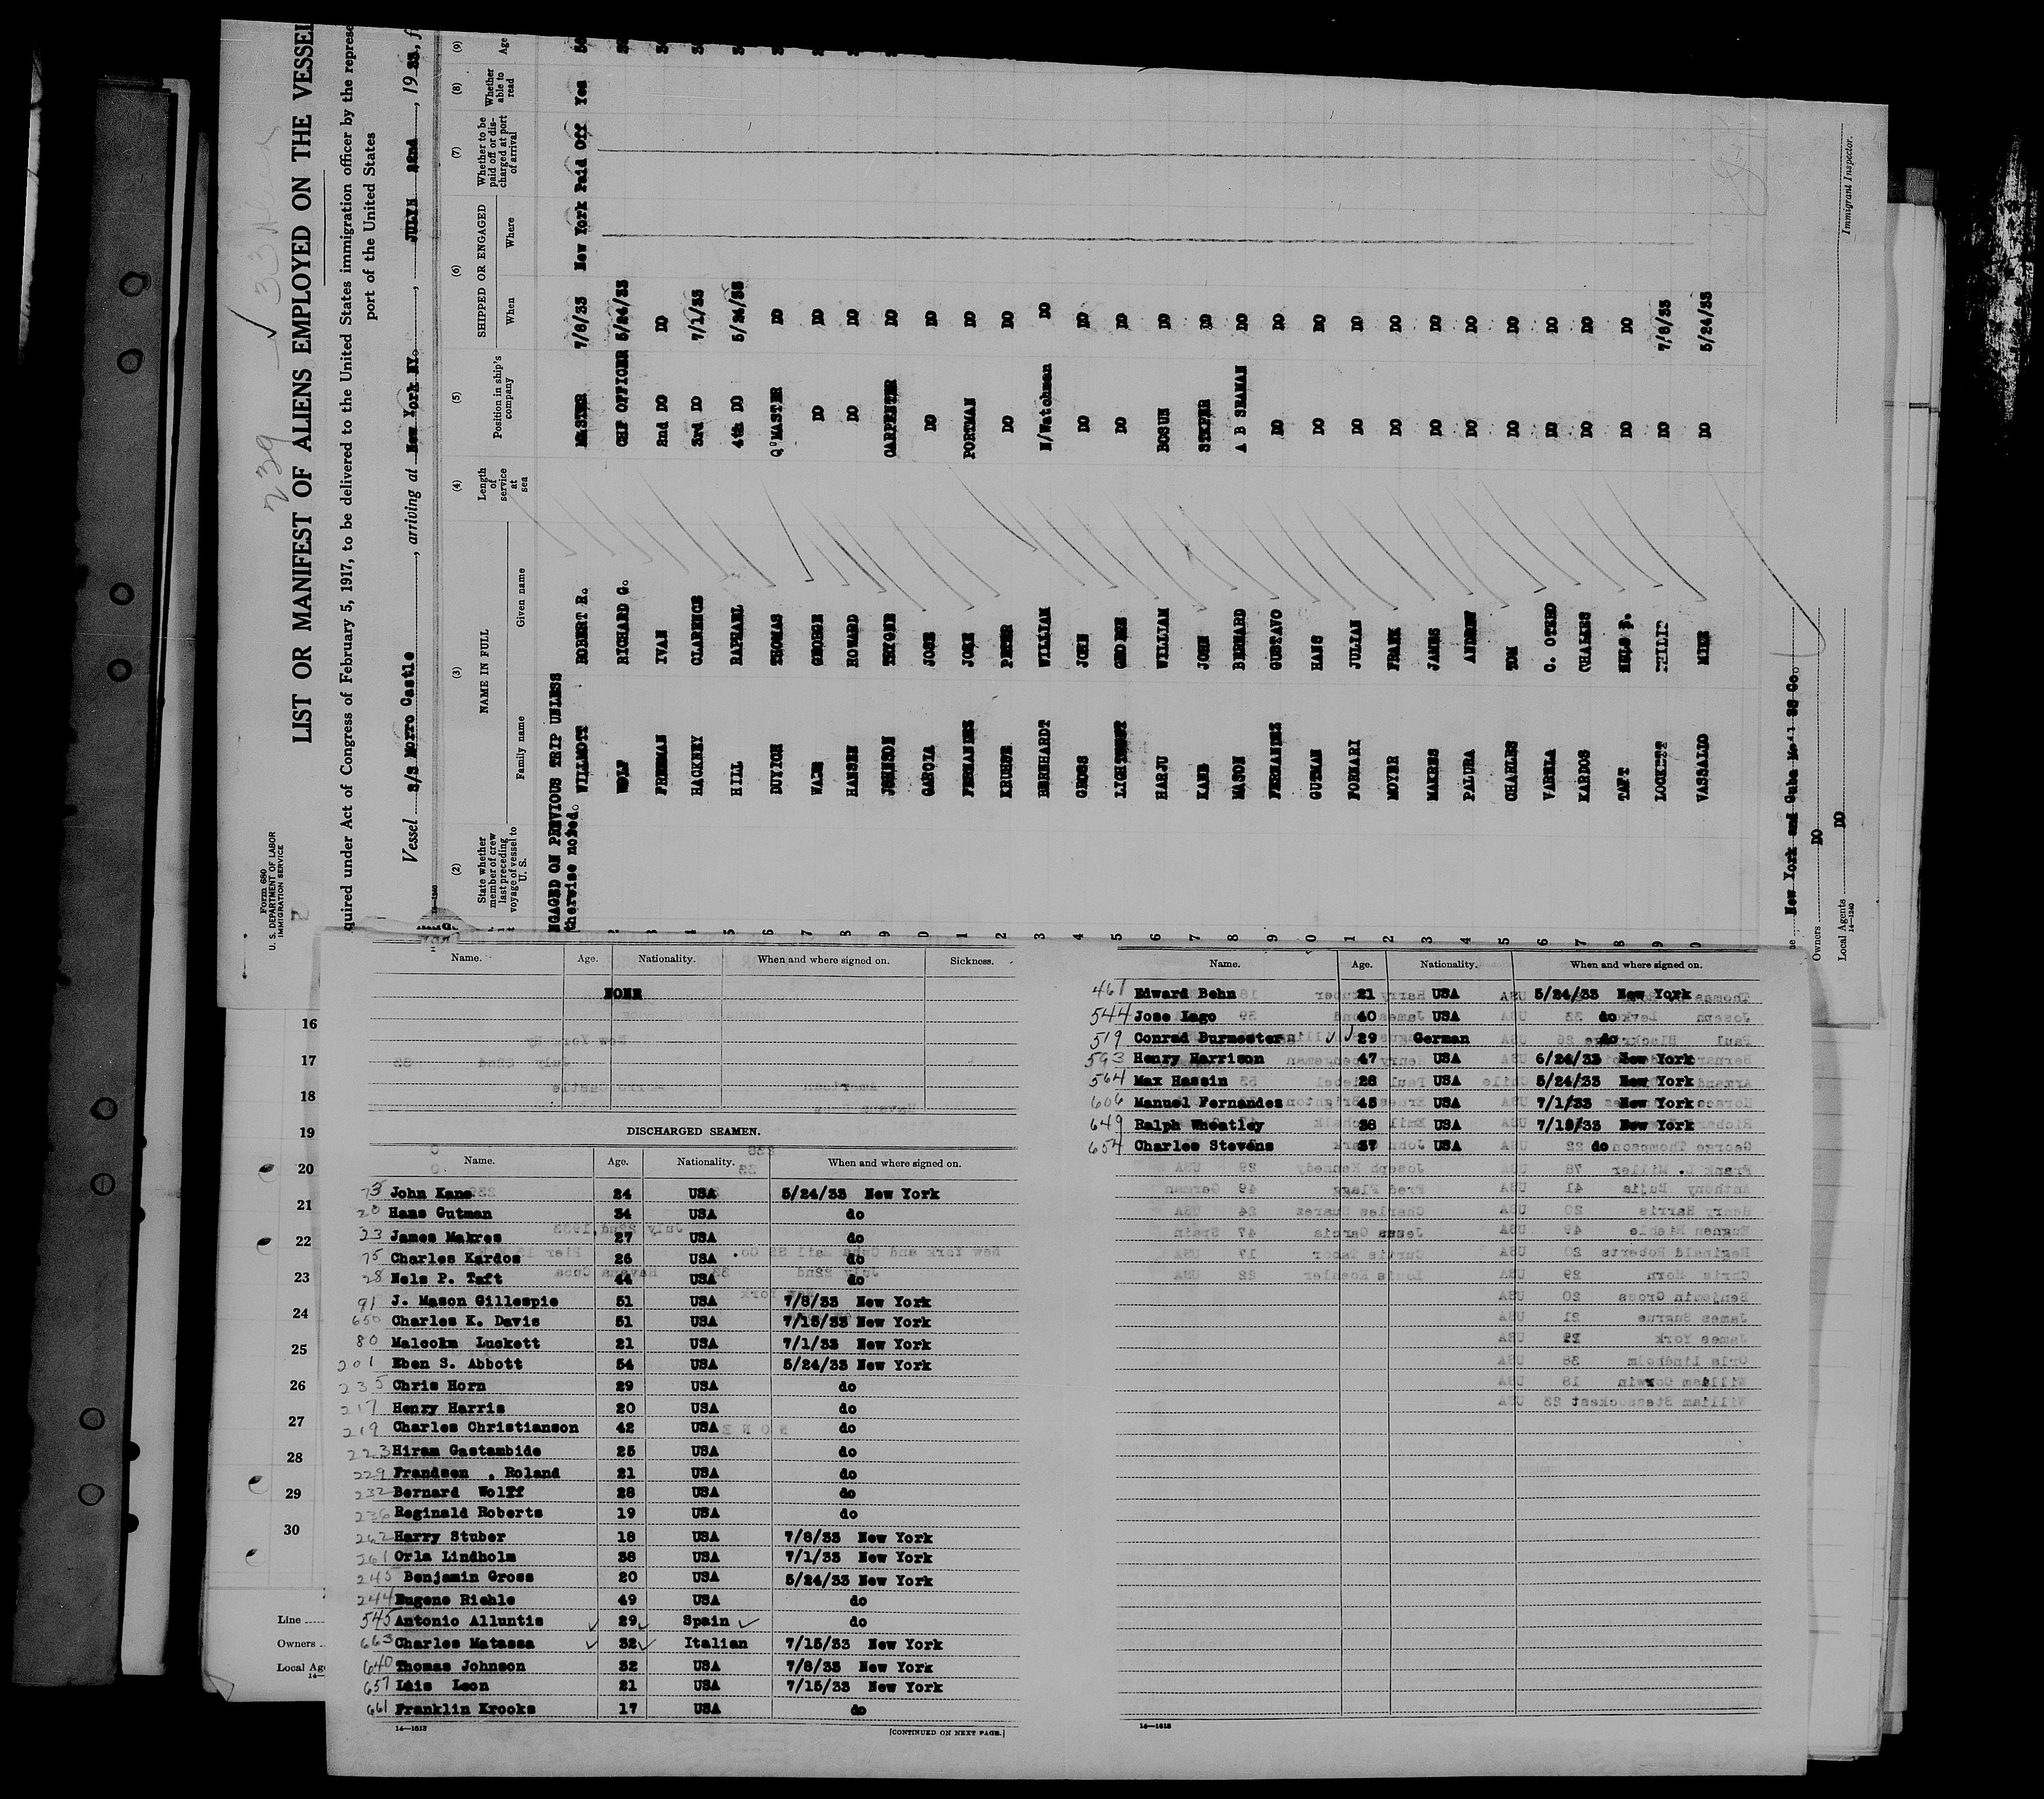 ✓ 33 Ne
239
Form 680
U. S. DEPARTMENT OF LABOR
IMMIGRATION SERVICE
LIST OR MANIFEST OF ALIENS EMPLOYED ON THE VESSEL
quired under Act of Congress of February 5, 1917, to be delivered to the United States immigration officer by the represe
port of the United States
Vessel S/S Morro Castle, arriving at New York NY., JULY 22nd, 1933, f
(2) (3) (4) (5) (6) (7) (8) (9)
State whether member of crew last preceding voyage of vessel to U. S. NAME IN FULL Family name Given name Length of service at sea Position in ship's company SHIPPED OR ENGAGED When Where Whether to be paid off or discharged at port of arrival Whether able to read Age
NGAGED ON PREVIOUS TRIP UNLESS
therwise noted.
WILLMOTT ROBERT R. MASTER 7/6/33 New York Paid Off Yes
2 WOLF RICHARD G. CHF OFFICER 5/24/33
3 FREEMAN IVAN 2nd DO DO
4 HACKNEY CLARENCE 3rd DO 7/1/33
5 HILL RAPHAEL 4th DO 5/24/33
6 THOMAS Q'MASTER DO
7 GEORGE DO DO
8 HANSEN HOWARD DO DO
9 JOHNSON CARPENTER DO
0 GARCIA JOSE DO DO
1 FERNANDEZ JOSE PORTMAN DO
2 KRUHSE PETER DO DO
3 BERNHARDT WILLIAM N/Watchman DO
4 GROSS JOHN DO DO
5 GEORGE DO DO
6 HARJU WILLIAM BOSUN DO
7 KANE JOHN DO
8 MASON BERNARD A B SEAMAN DO
9 FERNANDEZ GUSTAVO DO DO
0 GUTMAN HANS DO DO
1 FORNARI JULIAN DO DO
2 MOYER FRANK DO DO
3 MAKRES JAMES DO DO
4 PALURA ANDREW DO DO
5 CHARLES TOM DO DO
6 VARELA C. OTERO DO DO
7 KARDOS CHARLES DO DO
8 TAFT NELS P. DO DO
9 LOCKETT PHILIP DO 7/6/33
0 VASSALLO MIKE DO 5/24/33
ne New York and Cuba Mail SS Co.
Owners DO
Local Agents DO
14—1240
Immigrant Inspector.
Name. Age. Nationality. When and where signed on. Sickness.
NONE
DISCHARGED SEAMEN.
Name. Age. Nationality. When and where signed on.
73 John Kane 24 USA 5/24/33 New York
20 Hans Gutman 34 USA do
23 James Makres 27 USA do
75 Charles Kardos 26 USA do
28 Nels P. Taft 44 USA do
91 J. Mason Gillespie 51 USA 7/8/33 New York
650 Charles K. Davis 51 USA 7/15/33 New York
80 Malcolm Luckett 21 USA 7/1/33 New York
201 Eben S. Abbott 54 USA 5/24/33 New York
235 Chris Horn 29 USA do
217 Henry Harris 20 USA do
219 Charles Christianson 42 USA do
223 Hiram Gastambide 25 USA do
229 Frandsen . Roland 21 USA do
232 Bernard Wolff 28 USA do
236 Reginald Roberts 19 USA do
262 Harry Stuber 18 USA 7/8/33 New York
261 Orla Lindholm 38 USA 7/1/33 New York
245 Benjamin Gross 20 USA 5/24/33 New York
244 Eugene Riehle 49 USA do
545 Antonio Alluntis ✓ 29 ✓ Spain ✓ do
663 Charles Matassa ✓ 32 ✓ Italian 7/15/33 New York
640 Thomas Johnson 32 USA 7/8/33 New York
657 Luis Leon 21 USA 7/15/33 New York
661 Franklin Krooks 17 USA do
14—1613 [CONTINUED ON NEXT PAGE.]
Name. Age. Nationality. When and where signed on.
461 Edward Behn 21 USA 5/24/33 New York
544 Jose Lago 40 USA do
519 Conrad Burmester ✓ ✓ 29 German do
593 Henry Harrison 47 USA 6/24/33 New York
564 Max Hassin 28 USA 5/24/33 New York
606 Manuel Fernandez 45 USA 7/1/33 New York
649 Ralph Wheatley 38 USA 7/15/33 New York
654 Charles Stevens 37 USA do
14—1613
16
17
18
19
20
21
22
23
24
25
26
27
28
29
30
Line
Owners
Local Ag
14—